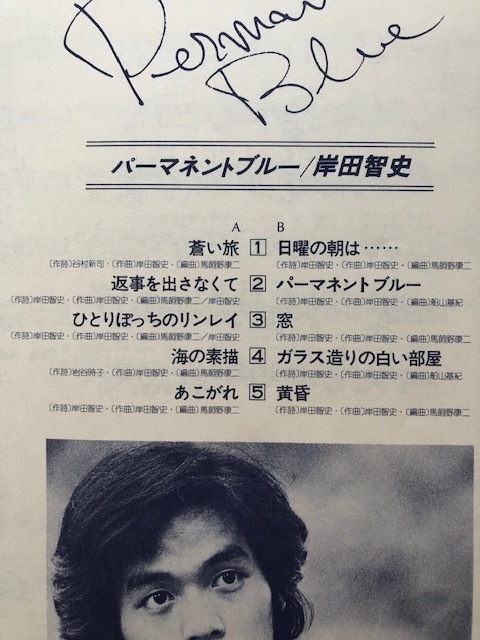 Perman
Blue
パーマネントブルー/岸田智史
A B
蒼い旅 1 日曜の朝は……
(作詩)谷村新司・(作曲)岸田智史・(編曲)馬飼野康二 (作詩)岸田智史・(作曲)岸田智史・(編曲)馬飼野康二
返事を出さなくて 2 パーマネントブルー
(作詩)岸田智史・(作曲)岸田智史・(編曲)馬飼野康二/岸田智史 (作詩)岸田智史・(作曲)岸田智史・(編曲)船山基紀
ひとりぽっちのリンレイ 3 窓
(作詩)岸田智史・(作曲)岸田智史・(編曲)馬飼野康二/岸田智史 (作詩)岸田智史・(作曲)岸田智史・(編曲)馬飼野康二
海の素描 4 ガラス造りの白い部屋
(作詩)岩谷時子・(作曲)岸田智史・(編曲)馬飼野康二 (作詩)岸田智史・(作曲)岸田智史・(編曲)船山基紀
あこがれ 5 黄昏
(作詩)岸田智史・(作曲)岸田智史・(編曲)馬飼野康二 (作詩)岸田智史・(作曲)岸田智史・(編曲)馬飼野康二